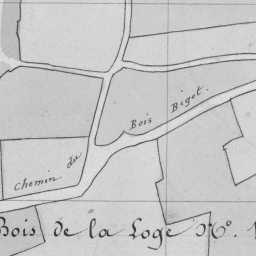 Bois Biget.
Chemin du
Bois de la Loge N.º 1